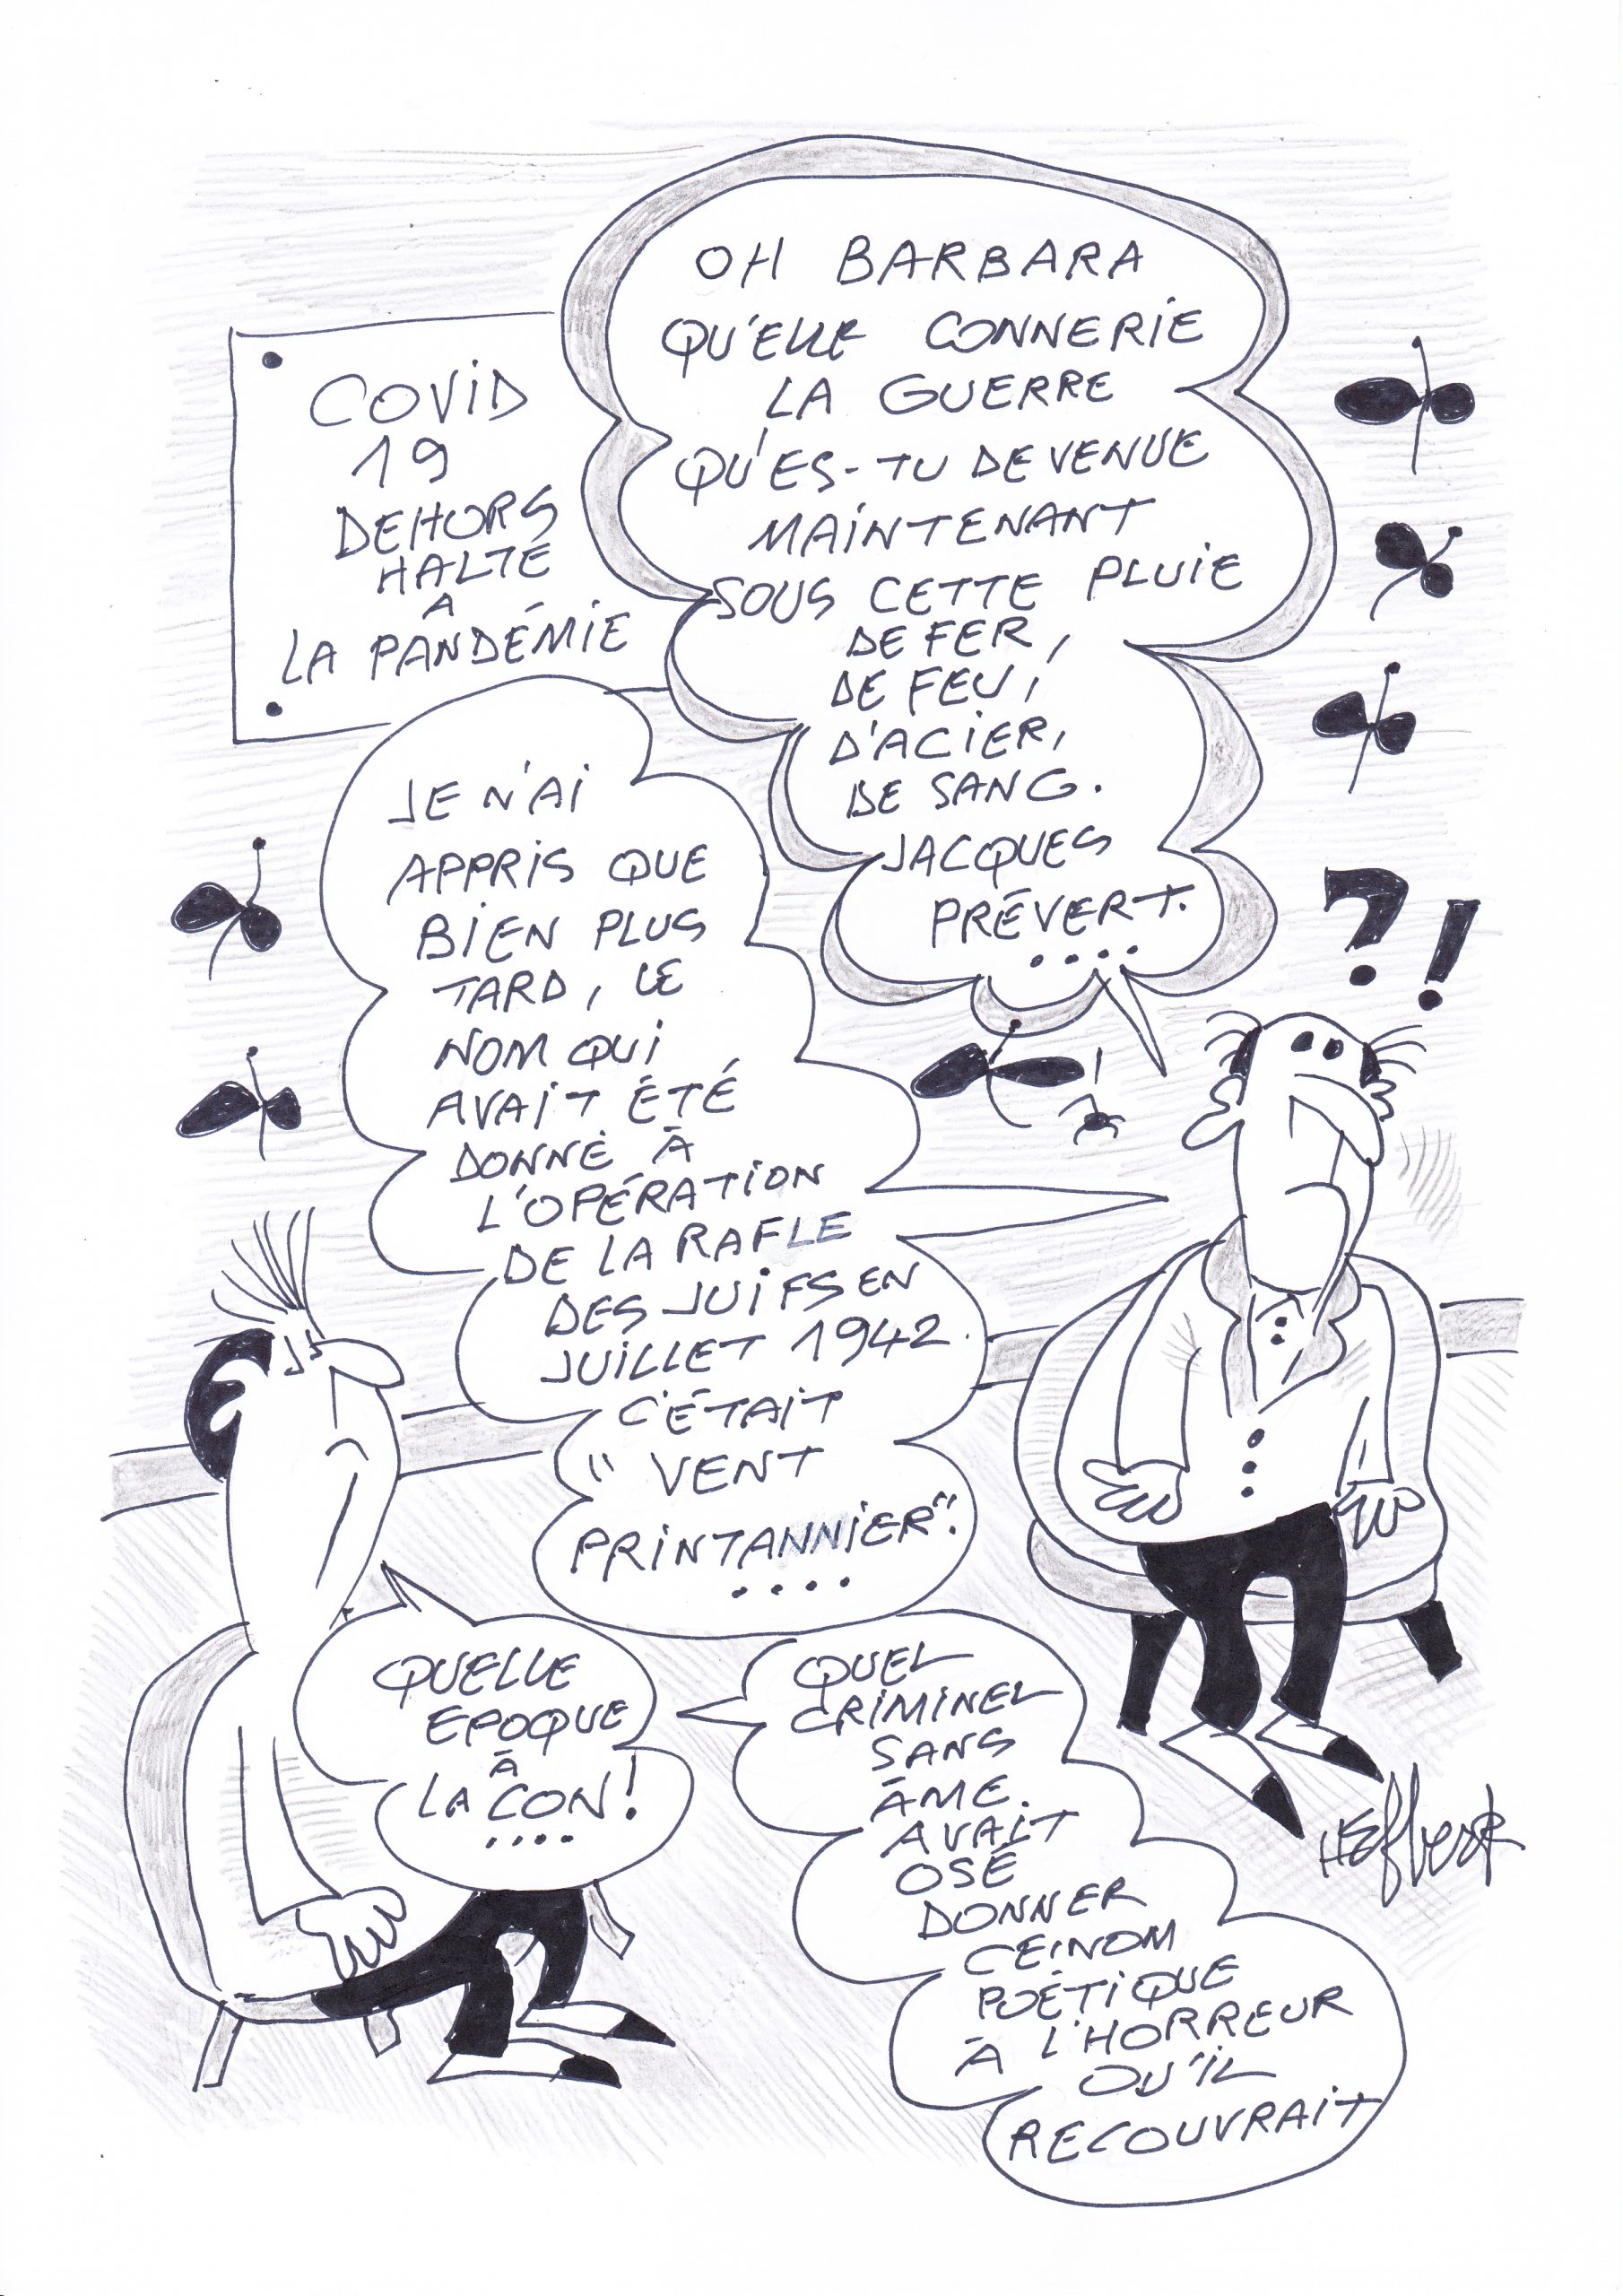 COVID
19
DEHORS
HALTE
A
LA PANDÉMIE
OH BARBARA
QU'ELLE CONNERIE
LA GUERRE
QU'ES-TU DEVENUE
MAINTENANT
SOUS CETTE PLUIE
DE FER,
DE FEU,
D'ACIER,
DE SANG.
JACQUES
PRÉVERT.
....
?!
JE N'AI
APPRIS QUE
BIEN PLUS
TARD, LE
NOM QUI
AVAIT ÉTÉ
DONNÉ À
L'OPÉRATION
DE LA RAFLE
DES JUIFS EN
JUILLET 1942
C'ÉTAIT
"VENT
PRINTANNIER".
....
QUELLE
EPOQUE
À
LA CON!
....
QUEL
CRIMINEL
SANS
ÂME.
AVAIT
OSÉ
DONNER
CE NOM
POÉTIQUE
À L'HORREUR
QU'IL
RECOUVRAIT